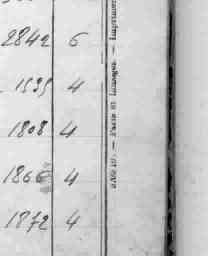 2842 6
1535 4
1808 4
1866 4
1872 4
— Paris et Limoges. — Imprimer